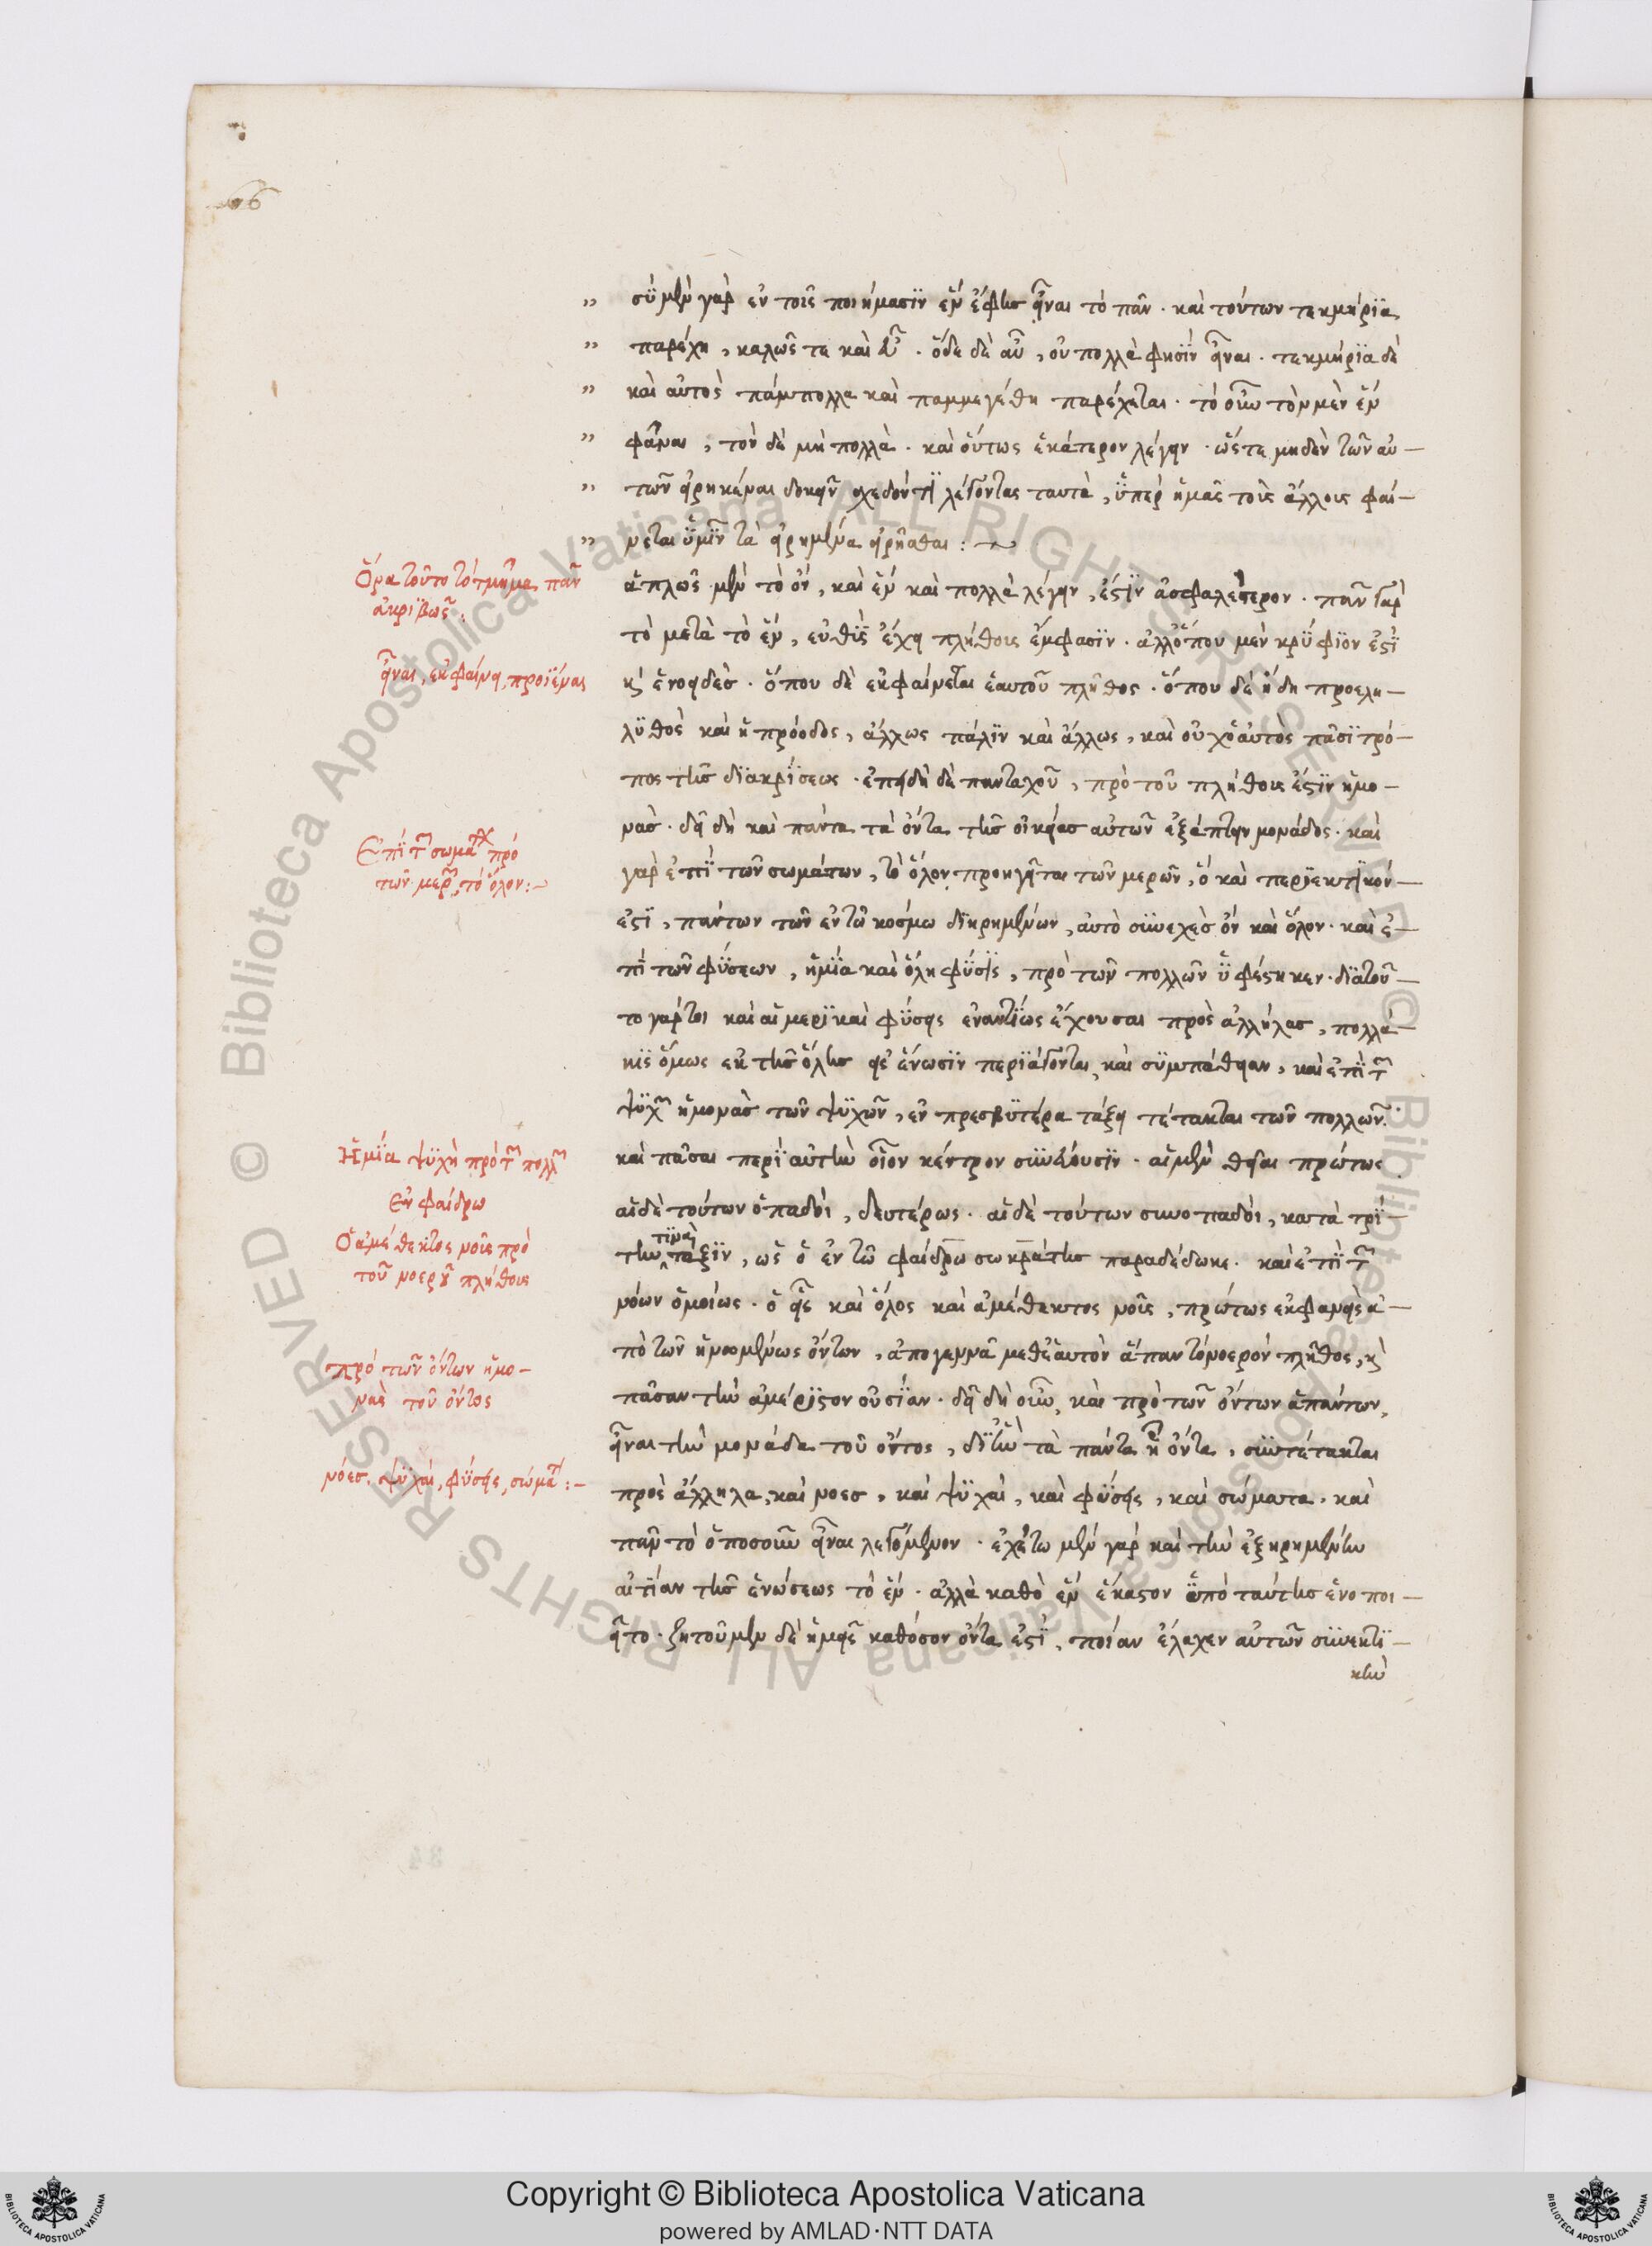 66
σὺ μὲν γὰρ ἐν τοῖς ποιήμασιν ἓν ἔφης εἶναι τὸ πᾶν · καὶ τούτων τεκμήρια
παρέχη, καλῶς τε καὶ εὖ · ὅδε δὲ αὖ, οὐ πολλά φησὶν εἶναι · τεκμήρια δὲ
καὶ αὐτὸς πάμπολλα καὶ παμμεγέθη παρέχεται · τὸ οὖν τὸν μὲν ἓν
φάναι, τὸν δὲ μὴ πολλὰ · καὶ οὕτως ἑκάτερον λέγειν · ὥστε μηδὲν τῶν αὐ-
τῶν εἰρηκέναι δοκεῖν σχεδόν τι λέγοντας ταυτὰ, ὑπὲρ ἡμᾶς τοὺς ἄλλους φαί-
νεται ὑμῖν τὰ εἰρημένα εἰρῆσθαι :~
ἁπλῶς μὲν τὸ ὂν, καὶ ἓν καὶ πολλὰ λέγειν, ἐστὶν ἀσφαλέστερον · πᾶν γὰρ
τὸ μετὰ τὸ ἓν, εὐθὺς ἔχει πλήθους ἔμφασιν · ἀλλ' ὅπου μὲν κρύφιόν ἐστι
κ' ἑνοειδὲς · ὅπου δὲ ἐκφαίνεται ἑαυτοῦ πλῆθος · ὅπου δὲ ἤδη προελη-
λυθὸς καὶ ἡ πρόοδος, ἄλλως πάλιν καὶ ἄλλως, καὶ οὐχ ὁ αὐτὸς πᾶσι τρό-
πος τῆς διακρίσεως · ἐπειδὴ δὲ πανταχοῦ, πρὸ τοῦ πλήθους ἐστὶν ἡ μο-
νὰς · δεῖ δὴ καὶ πάντα τὰ ὄντα τῆς οἰκείας αὐτῶν ἐξάπτειν μονάδος · καὶ
γὰρ ἐπὶ τῶν σωμάτων, τὸ ὅλον προηγεῖται τῶν μερῶν, ὃ καὶ περιεκτικόν
ἐστι, πάντων τῶν ἐν τῶ κόσμω διηρημένων, αὐτὸ συνεχὲς ὂν καὶ ὅλον · καὶ ἐ-
πὶ τῶν φύσεων, ἡ μία καὶ ὅλη φύσις, πρὸ τῶν πολλῶν ὑφέστηκεν · διὰ τοῦ-
το γάρ τοι καὶ αἱ μερικαὶ φύσεις ἐναντίως ἔχουσαι πρὸς ἀλλήλας, πολλά-
κις ὅμως ἐκ τῆς ὅλης εἰς ἕνωσιν περιάγονται, καὶ συμπάθειαν, καὶ ἐπὶ τ
ψυχ ἡ μονὰς τῶν ψυχῶν, ἐν πρεσβυτέρα τάξει τέτακται τῶν πολλῶν ·
καὶ πᾶσαι περὶ αὐτὴν οἷον κέντρον συνδέουσιν · αἱ μὲν θεῖαι πρώτως
αἱ δὲ τούτων ὀπαδοὶ, δευτέρως · αἱ δὲ τούτων συνοπαδοὶ, κατὰ τρί-
την τινὰ τάξιν, ὡς ὁ ἐν τῶ φαίδρω σωκράτης παραδέδωκε · καὶ ἐπὶ τ
νόων ὁμοίως · ὁ εἷς καὶ ὅλος καὶ ἀμέθεκτος νοῦς, πρώτως ἐκφανεὶς ἀ-
πὸ τῶν ἡνωμένως ὄντων, ἀπογεννᾶ μεθ' ἑαυτὸν ἅπαν τὸ νοερὸν πλῆθος, κ
πᾶσαν τὴν ἀμέριστον οὐσίαν · δεῖ δὴ οὖν, καὶ πρὸ τῶν ὄντων ἁπάντων,
εἶναι τὴν μονάδα τοῦ ὄντος, δι' ἣν τὰ πάντα ᾗ ὄντα, συντέτακται
πρὸς ἄλληλα, καὶ νόες, καὶ ψυχαὶ, καὶ φύσεις, καὶ σώματα, καὶ
πᾶν τὸ ὁπωσοῦν εἶναι λεγόμενον · ἐχέτω μὲν γὰρ καὶ τὴν ἐξηρημένην
αἰτίαν τῆς ἑνώσεως τὸ ἓν · ἀλλὰ καθὸ ἓν ἕκαστον ὑπὸ ταύτης ἑνοποι-
εῖτο · ζητοῦμεν δὲ ἡμεῖς καθόσον ὄντα ἐστὶ, ποίαν ἔλαχεν αὐτῶν συνεκτι-
κὴν
Ὅρα τοῦτο τὸ τμῆμα πᾶν
ἀκριβῶς :
εἶναι, ἐκφαίνει, προϊέναι
Ἐπὶ τ σωματ πρό
τῶν μερ, τὸ ὅλον :~
Ἡ μία ψυχὴ πρὸ τ πολλ
Ἐν φαίδρω
Ὁ ἀμέθεκτος νοῦς πρὸ
τοῦ νοεροῦ πλήθους
πρὸ τῶν ὄντων ἡ μο-
νὰς τοῦ ὄντος
νόες, ψυχαὶ, φύσεις, σώματ :~
© Biblioteca Apostolica Vaticana ALL RIGHTS RESERVED
© Biblioteca Apostolica Vaticana ALL RIGHTS RESERVED
Copyright © Biblioteca Apostolica Vaticana
powered by AMLAD·NTT DATA
BIBLIOTECA APOSTOLICA VATICANA
BIBLIOTECA APOSTOLICA VATICANA